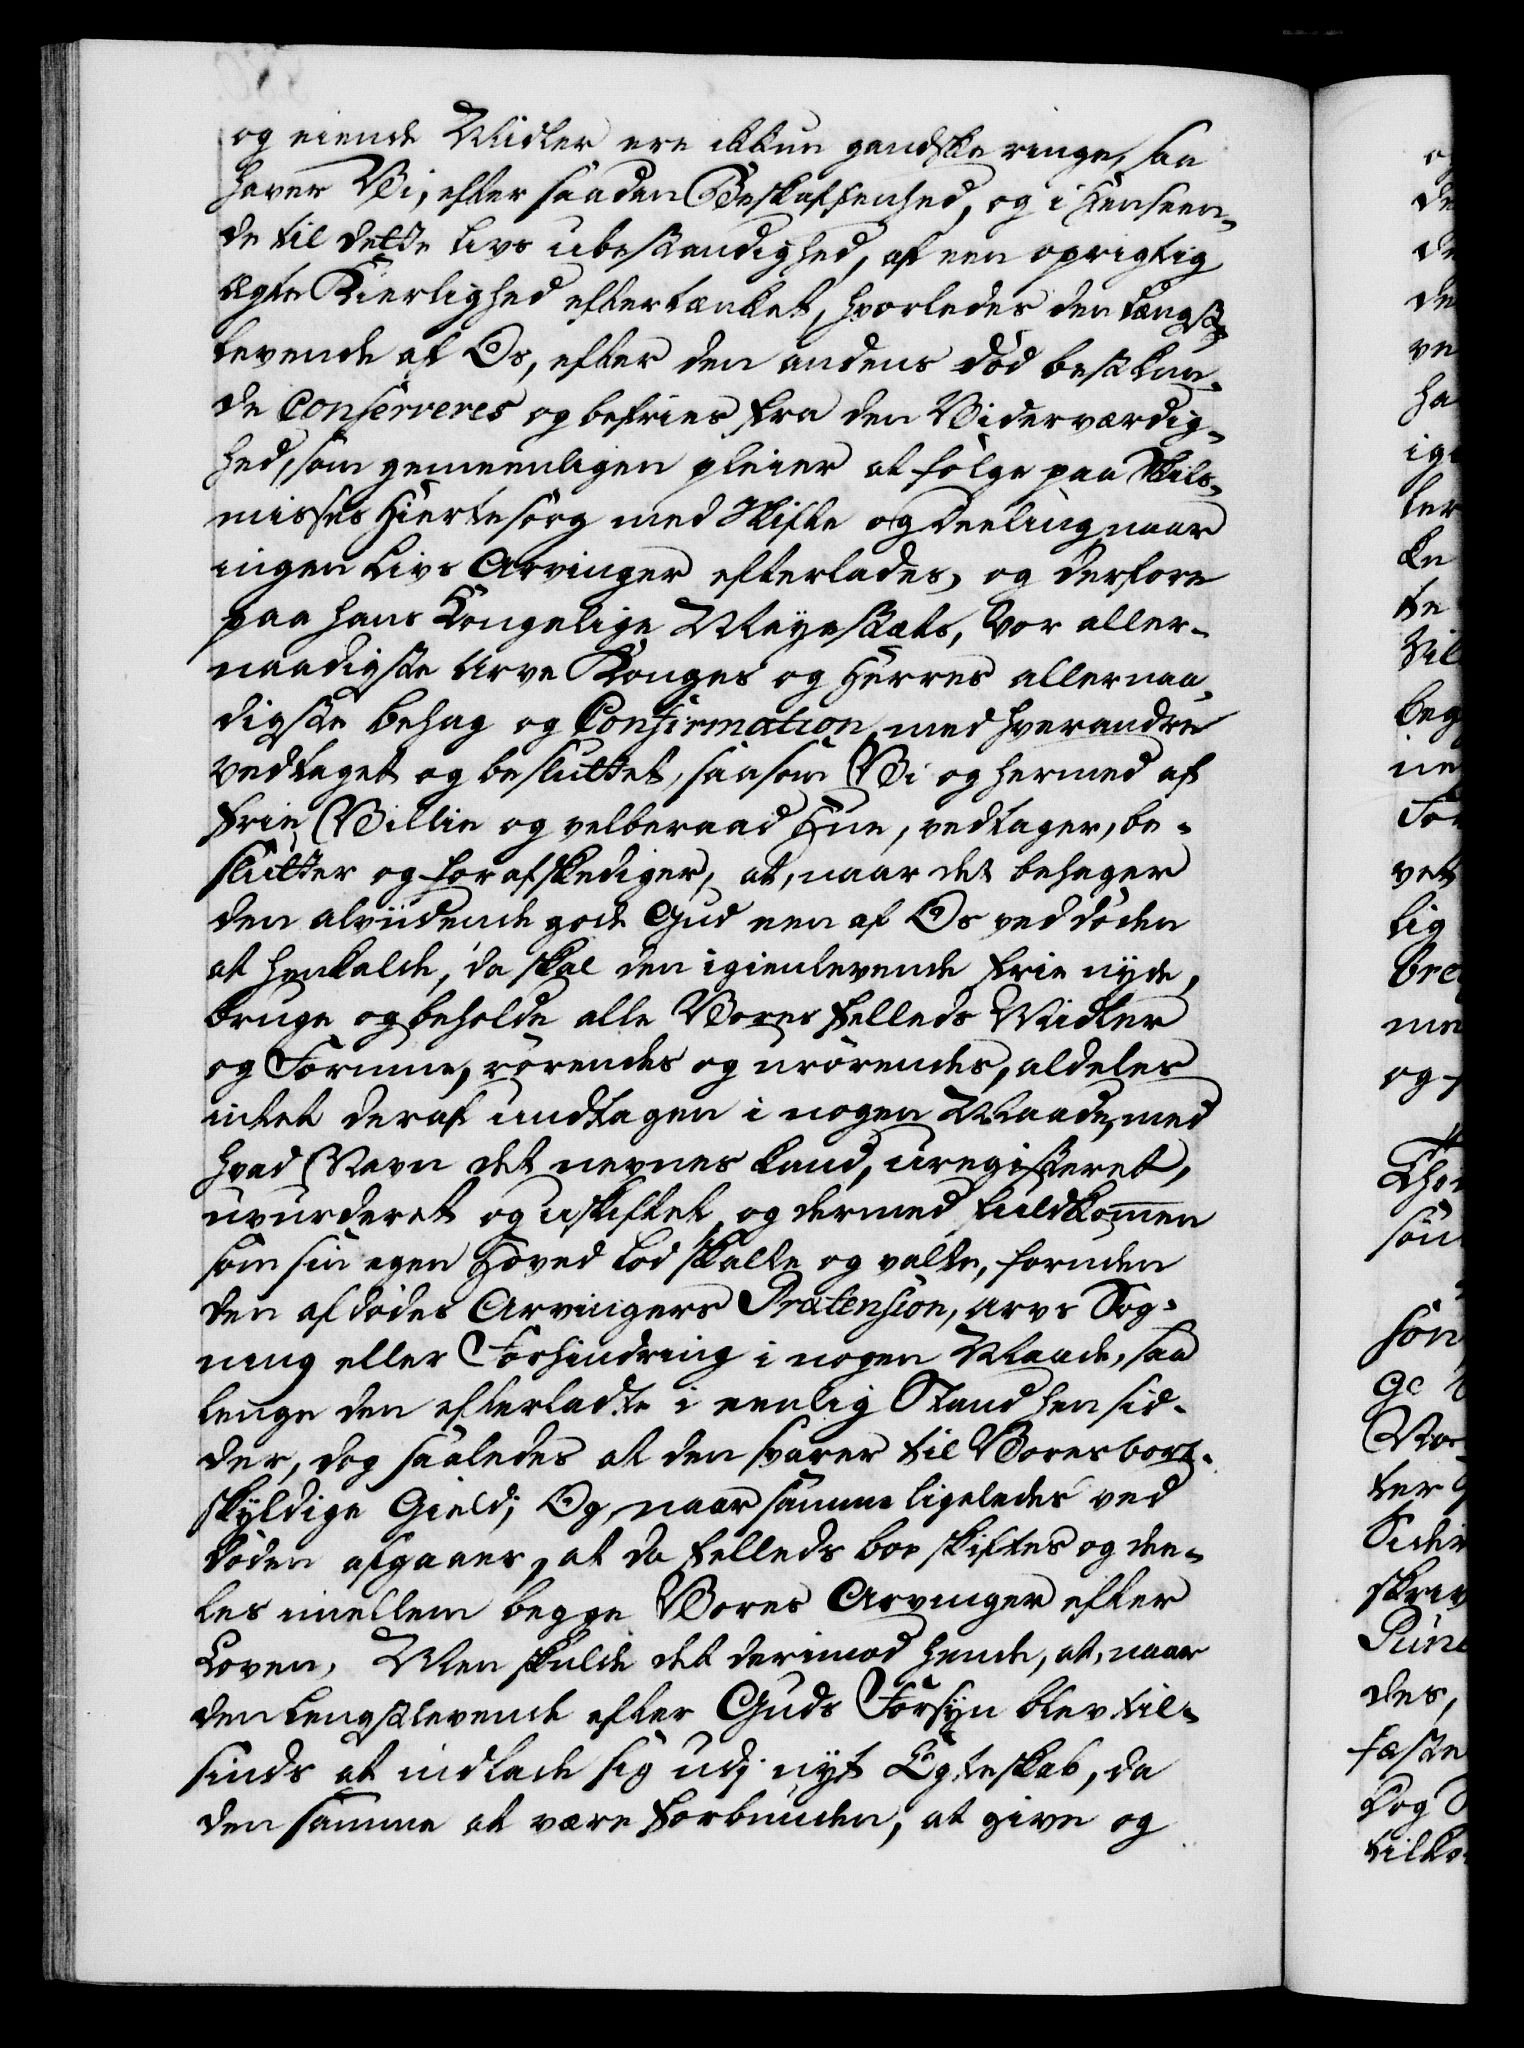 og eiende Midler ere ikkun gandske ringe, saa
haver Vi, efter saadan Beskaffenhed, og i Henseen-
de til dette livs ubestandighed, af een oprigtig
Ægte Kierlighed eftertænket, hvorledes den længst-
levende af Os, efter den andens død best kun-
de Conserveres og befries fra den Viderværdig-
hed, som gemeenligen pleier at følge paa Skils-
misses Hiertesorg med Skifte og deeling, naar
ingen Livs Arvinger efterlades, og derfore
paa hans Kongelige Mayestæts, Vor aller-
naadigste Arve Konges og Herres allernaa-
digste behag og Confirmation, med hverandre
vedtaget og besluttet, saasom Vi og hermed af
frie Villie og velberaad Hue, vedtager, be-
slutter og forafskediger, at, naar det behager
den alvidende gode Gud een af Os ved døden
at henkalde, da skal den igienlevende frie nyde,
bruge og beholde alle Vores felleds Midler
og Formue, rørendes og urørendes, aldeles
intet deraf undtagen i nogen Maade, med
hvad Navn det nevnes kand, uregisteret,
uvurderet og uskiftet, og dermed fuldkommen
som sin egen Hoved lod skalte og valte, foruden
den afdødes Arvingers Prætension, arvs Søg-
ning eller Forhindring i nogen Maade, saa
lenge den efterladte i eenlig Stand hensid-
der, dog saaledes at den svarer til Vores bort-
skyldige Gield; Og, naar samme ligeledes ved
døden afgaaer, at da felleds boe skiftes og dee-
les imellem begge Vores Arvinger efter
Loven, Men skulde det derimod hende, at, naar
den Lengstlevende efter Guds Forsyn blev til-
sinds at indlade sig udj nyt Egteskab, da
den samme at være forbunden, at give og